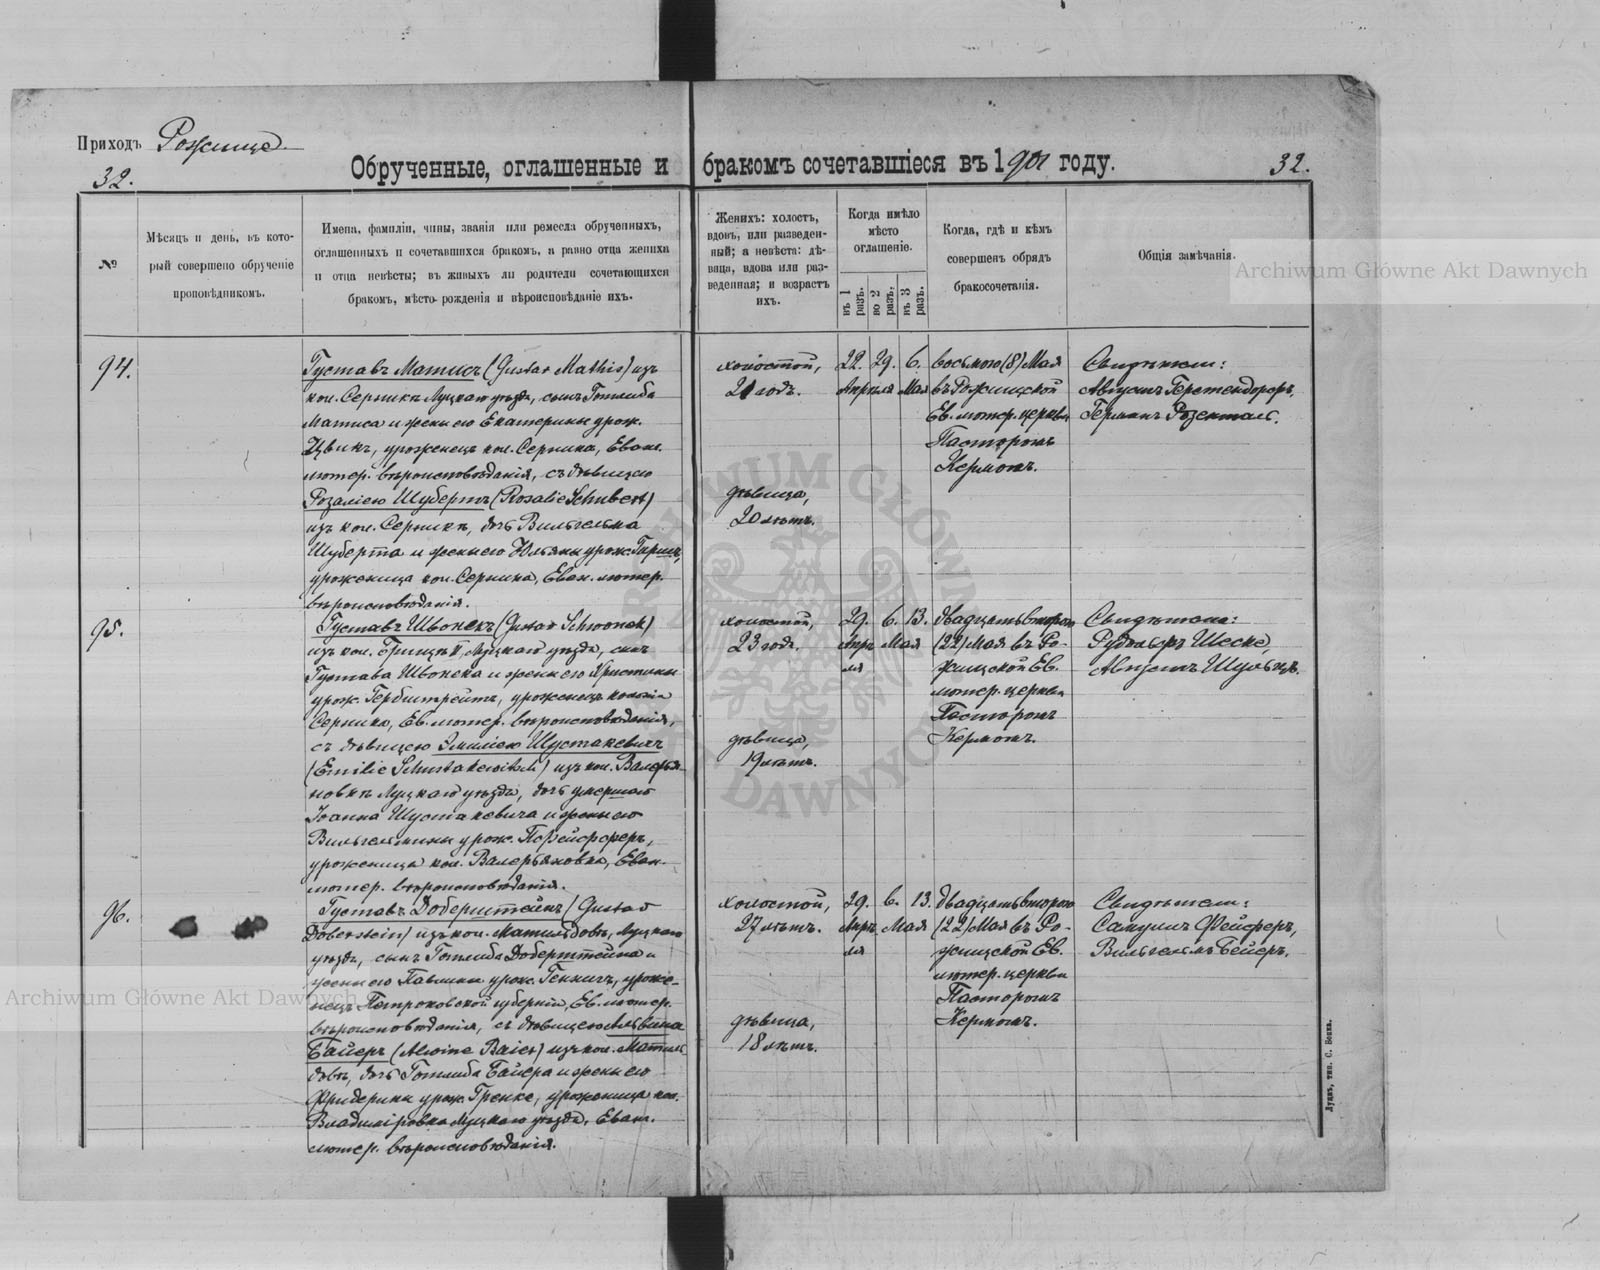 Приходъ Рожище
32.
Обрученные, оглашенные и бракомъ сочетавшіеся въ 1901 году.
32.
№
Мѣсяцъ и день, въ кото-
рый совершено обрученіе
проповѣдникомъ.
Имена, фамиліи, чины, званія или ремесла обрученныхъ,
оглашенныхъ и сочетавшихся бракомъ, а равно отца жениха
и отца невѣсты; въ живыхъ ли родители сочетающихся
бракомъ, мѣсто рожденія и вѣроисповѣданіе ихъ.
Женихъ: холостъ,
вдовъ, или разведен-
ный; а невѣста: дѣ-
вица, вдова или раз-
веденная; и возрастъ
ихъ.
Когда имѣло
мѣсто
оглашеніе.
въ 1 разъ.
во 2 разъ.
въ 3 разъ.
Когда, гдѣ и кѣмъ
совершенъ обрядъ
бракосочетанія.
Общія замѣчанія.
Archiwum Główne Akt Dawnych
94.
Густавъ Матисъ (Gustav Mathis) изъ
кол. Серники Луцкаго уѣзда, сынъ Готлиба
Матиса и жены его Екатерины урож.
Цвикъ, уроженецъ кол. Серника, Еванг.
лютер. вѣроисповѣданія, съ дѣвицею
Розаліею Шубертъ (Rosalie Schubert)
изъ кол. Серники, дочь Вильгельма
Шуберта и жены его Юльяны урож.
уроженица кол. Серника, Еван. лютер.
вѣроисповѣданія.
холостой,
21 годъ.
дѣвица,
20 лѣтъ.
22. 29. 6.
Апрѣля Мая
восьмого (8) Мая
въ Рожищской
Ев. лютер. церкви
Пасторомъ
Кермомъ.
Свидѣтели:
Августъ Герстендорфъ,
Германъ Розенталь.
95.
Густавъ Швонекъ (Gustav Schwonek)
изъ кол. Луцкаго уѣзда, сынъ
Густава Швонека и жены его Христины
урож. Гербштрейтъ, уроженецъ колоніи
Серника, Ев. лютер. вѣроисповѣданія,
съ дѣвицею Эмиліею Шустакевичъ
(Emilie Schustakewitsch) изъ кол. Валерья-
новки Луцкаго уѣзда, дочь умершаго
Іоанна Шустакевича и жены его
Вильгельмины урож. Пфейфферъ,
уроженица кол. Валерьяновка, Еван.
лютер. вѣроисповѣданія.
холостой,
23 года.
дѣвица,
19 лѣтъ.
29. 6. 13.
Апрѣ Мая
ля
двадцать второго
(22) Мая въ Ро-
жищской Ев.
лютер. церкви
Пасторомъ
Кермомъ.
Свидѣтели:
Рудольфъ Шеске,
Августъ Шульцъ.
96.
Густавъ Доберштейнъ (Gustav
Doberstein) изъ кол. Матильдовъ, Луцкаго
уѣзда, сынъ Готлиба Доберштейна и
жены его Павлины урож. Геннигъ, уроже-
нецъ Петроковской губерніи, Ев. лютер.
вѣроисповѣданія, съ дѣвицею Альвина
Байеръ (Alwine Baier) изъ кол. Матиль
довъ, дочь Готлиба Байера и жены его
Фридерики урож. Гренке, уроженица кол.
Владиміровка Луцкаго уѣзда, Еванг.
лютер. вѣроисповѣданія.
холостой,
27 лѣтъ.
дѣвица,
18 лѣтъ.
29. 6. 13.
Апрѣ Мая
ля
двадцать второго
(22) Мая въ Ро-
жищской Ев.
лютер. церкви
Пасторомъ
Кермомъ.
Свидѣтели:
Самуилъ Фейферъ,
Вильгельмъ Бейеръ.
Archiwum Główne Akt Dawnych
ARCHIWUM GŁÓWNE AKT DAWNYCH
Луцкъ, тип. С. Бейка.